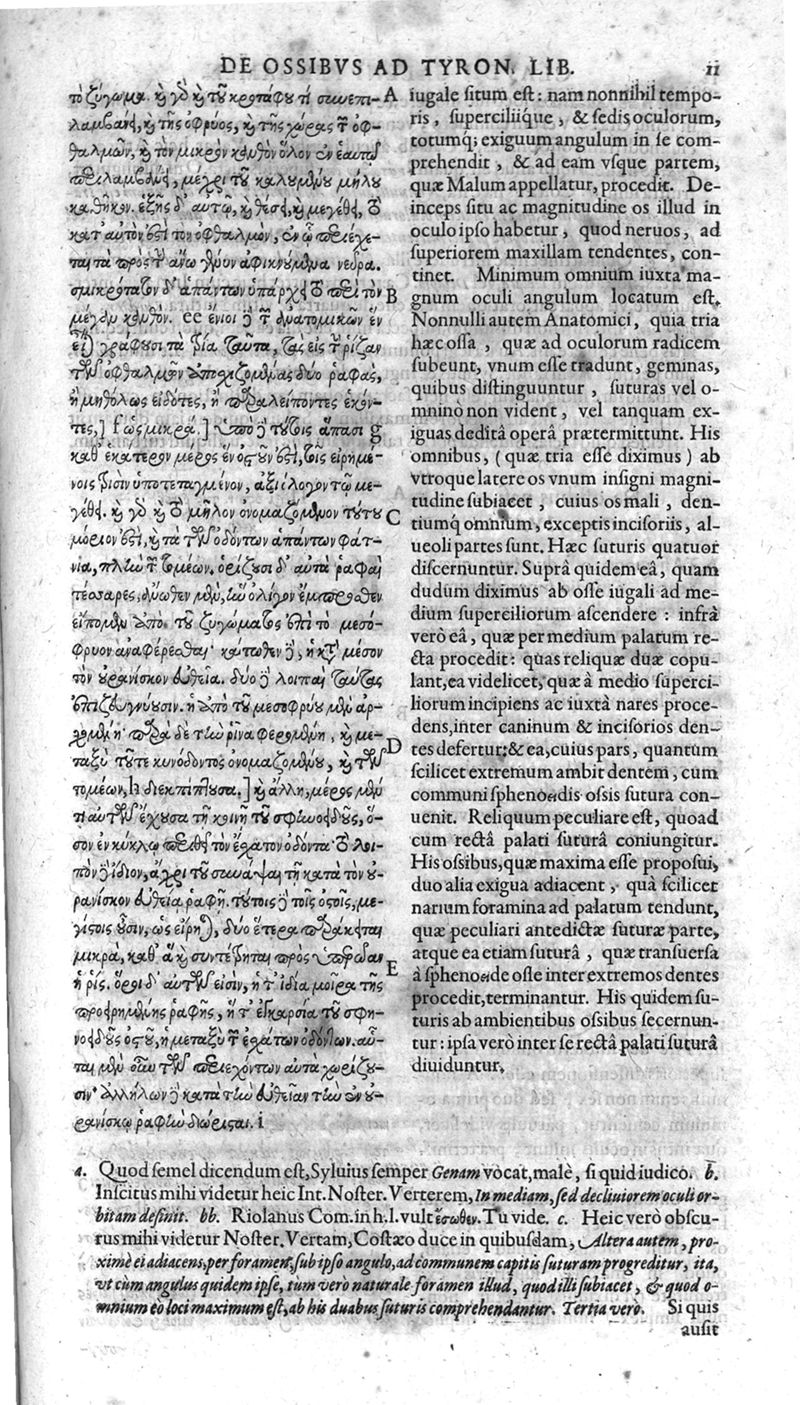 DE OSSIBVS AD TYRON. LIB. 11
τὸ ζύγωμα. καὶ γὸ καὶ τοῦ κροτάφου τι συνεπι-
λαμβάνει, καὶ τῆς ὀφρύος, καὶ τῆς χώρας τῶν ὀφ-
θαλμῶν, καὶ τὸν μικρὸν κανθὸν ὅλον ἐν ἑαυτῷ
περιλαμβάνει, μέχρι τοῦ καλουμένου μήλου
καθῆκον. ἑξῆς δ' αὐτῷ, καὶ θέσει, καὶ μεγέθει, τὸ
κατ' αὐτὸν ἐστὶ τὸν ὀφθαλμὸν, ἐν ᾧ περιέχε-
ται τὰ πρὸς τὴν ἄνω γένυν ἀφικνούμενα νεῦρα.
σμικρότατον δ' ἁπάντων ὑπάρχει τὸ περὶ τὸν
μέγαν κανθόν. ee ἔνιοι δὲ τῶν ἀνατομικῶν ἓν
εἶναι γράφουσι τὰ τρία ταῦτα, τὰς εἰς τὴν ῥίζαν
τῶν ὀφθαλμῶν ἀποσχιζομένας δύο ῥαφὰς,
ἢ μηδόλως εἰδότες, ἢ παραλείποντες ἑκόν-
τες,] f ὡς μικρά.] ὑπὸ δὲ τούτοις ἅπασι g
καθ' ἑκάτερον μέρος ἓν ὀστοῦν ἐστὶ, τοῖς εἰρημέ-
νοις τρισὶν ὑποτεταγμένον, ἀξιόλογον τῷ με-
γέθει. καὶ γὸ καὶ τὸ μῆλον ὀνομαζόμενον τούτου
μόριον ἐστὶ, καὶ τὰ τῶν ὀδόντων ἁπάντων φατ-
νία, πλὴν τῶν τομέων. ὁρίζουσι δ' αὐτὰ ῥαφαὶ
τέσσαρες, ἄνωθεν μὲν, ἣν ὀλίγον ἔμπροσθεν
εἴπομεν ἀπὸ τοῦ ζυγώματος ἐπὶ τὸ μεσό-
φρυον ἀναφέρεσθαι· κάτωθεν δὲ, ἡ κατὰ μέσον
τὸν οὐρανίσκον εὐθεῖα. δύο δὲ λοιπαὶ ταύτας
ἐπιζευγνύουσιν. ἡ ἀπὸ τοῦ μεσοφρύου μὲν ἀρ-
χομένη παρὰ δὲ τὴν ῥῖνα φερομένη, καὶ με-
ταξὺ τοῦ τε κυνόδοντος ὀνομαζομένου, καὶ τῶν
τομέων, h διεκπίπτουσα.] καὶ ἄλλη, μέρος μέν
τι αὐτῶν ἔχουσα τῇ κοινῇ τοῦ σφηνοειδοῦς, ὅ-
σον ἐν κύκλῳ περιθεῖ τὸν ἔσχατον ὀδόντα· τὸ λοι-
πὸν δὲ ἴδιον, ἄχρι τοῦ συνάψαι τῇ κατὰ τὸν οὐ-
ρανίσκον εὐθείᾳ ῥαφῇ. τούτοις δὲ τοῖς ὀστοῖς, με-
γίστοις οὖσιν, ὡς εἴρηται, δύο ἕτερα παράκειται
μικρὰ, καθ' ἃ καὶ συντέτρηται πρὸς ὑπερῴαν
ἡ ῥίς. ὅροι δ' αὐτῶν εἰσὶν, ἥ τ' ἰδία μοῖρα τῆς
προειρημένης ῥαφῆς, ἥ τ' ἐγκαρσία τοῦ σφη-
νοειδοῦς ὀστοῦ, ἡ μεταξὺ τῶν ἐσχάτων ὀδόντων. αὗ-
ται μὲν οὖν τῶν περιεχόντων αὐτὰ χωρίζου-
σιν· ἀλλήλων δὲ κατὰ τὴν εὐθεῖαν τὴν ἐν οὐ-
ρανίσκῳ ῥαφὴν διώρισται. i
A
B
C
D
E
iugale ſitum eſt: nam nonnihil tempo-
ris, ſuperciliíque, & ſedis oculorum,
totumq́; exiguum angulum in ſe com-
prehendit, & ad eam vſque partem,
quæ Malum appellatur, procedit. De-
inceps ſitu ac magnitudine os illud in
oculo ipſo habetur, quod neruos, ad
ſuperiorem maxillam tendentes, con-
tinet. Minimum omnium iuxta ma-
gnum oculi angulum locatum eſt.
Nonnulli autem Anatomici, quia tria
hæc oſſa, quæ ad oculorum radicem
ſubeunt, vnum eſſe tradunt, geminas,
quibus diſtinguuntur, ſuturas vel o-
mninò non vident, vel tanquam ex-
iguas deditâ operâ prætermittunt. His
omnibus, (quæ tria eſſe diximus) ab
vtroque latere os vnum inſigni magni-
tudine ſubiacet, cuius os mali, den-
tiumq́ omnium, exceptis inciſoriis, al-
ueoli partes ſunt. Hæc ſuturis quatuor
diſcernuntur. Suprâ quidem eâ, quam
dudum diximus ab oſſe iugali ad me-
dium ſuperciliorum aſcendere: infrâ
verò eâ, quæ per medium palatum re-
cta procedit: quas reliquæ duæ copu-
lant, ea videlicet, quæ à medio ſuperci-
liorum incipiens ac iuxtà nares proce-
dens, inter caninum & inciſorios den-
tes defertur; & ea, cuius pars, quantum
ſcilicet extremum ambit dentem, cum
communi ſphenoidis oſſis ſutura con-
uenit. Reliquum peculiare eſt, quoad
cum rectâ palati ſuturâ coniungitur.
His oſſibus, quæ maxima eſſe propoſui,
duo alia exigua adiacent, quà ſcilicet
narium foramina ad palatum tendunt,
quæ peculiari antedictæ ſuturæ parte,
atque ea etiam ſuturâ, quæ tranſuerſa
à ſphenoide oſſe inter extremos dentes
procedit, terminantur. His quidem ſu-
turis ab ambientibus oſſibus ſecernun-
tur: ipſa verò inter ſe rectâ palati ſuturâ
diuiduntur.
a. Quod ſemel dicendum eſt, Syluius ſemper Genam vocat, malè, ſi quid iudico. b.
Inſcitus mihi videtur heic Int. Noſter. Verterem, In mediam, ſed decliuiorem oculi or-
bitam deſinit. bb. Riolanus Com. in h. l. vult ἔσωθεν. Tu vide. c. Heic verò obſcu-
rus mihi videtur Noſter. Vertam, Coſtæo duce in quibuſdam, Altera autem, pro-
ximè ei adiacens, per foramen, ſub ipſo angulo, ad communem capitis ſuturam progreditur, ita,
vt cùm angulus quidem ipſe, tùm verò naturale foramen illud, quod illi ſubiacet, & quod o-
mnium eò loci maximum eſt, ab his duabus ſuturis comprehendantur. Tertia verò. Si quis
auſit